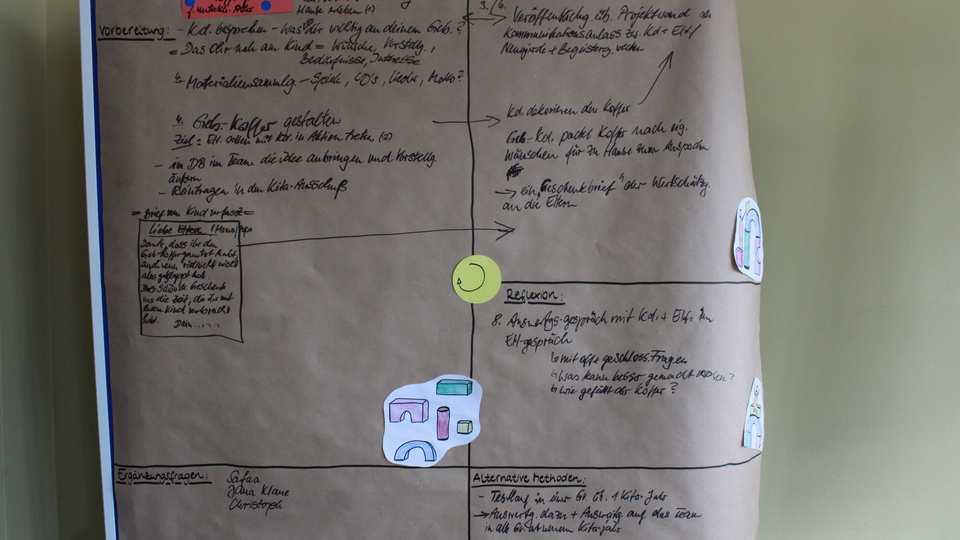 f. unterschl. Alter
Hause erleben (2)
Vorbereitung: - Kd. besprechen - Was dir wichtig an deinem Geb.?
= Das Ohr nah am Kind = Wünsche, Vorstellg.,
Bedürfnisse, Interesse
4. Materialiensammlg. - Spiele, CD's, Lieder, Motto?
4. Geb.-Koffer gestalten
Ziel: Elt. sollen mit Kd. in Aktion treten (2)
- in DB im Team die Idee anbringen und Vorstellg.
äußern
- Reintragen in den Kita-Ausschuß
= Brief vom Kind verfasst =
Liebe Eltern (Mama/Papa
Danke, dass ihr den
Geb.-Koffer genutzt habt,
auch wenn vielleicht nicht
alles geklappt hat.
Das schönste Geschenk
war die Zeit, die ihr mit
eurem Kind verbracht
habt.
Dein .....
3./6.
Veröffentlichg. üb. Projektwand als
Kommunikationsanlass zw. Kd + Elt/
Neugierde + Begeisterg. wecken
Kd. dekorieren den Koffer
Geb.-Kd. packt Koffer nach eig.
Wünschen für zu Hause zum Auspacken
→ ein "Geschenkbrief" der Wertschätzg.
an die Eltern
Reflexion:
8. Auswertgs-gespräch mit Kd. + Elt. im
EH-gespräch
↳ mit offe geschloss. Fragen
↳ Was kann besser gemacht werden?
↳ Wie gefällt der Koffer?
Ergänzungsfragen: Safaa
Jana Klare
Christoph
Alternative Methoden:
- Testlauf in einer Gr. 1 Kita-Jahr
→ Auswertg. dazu + Ausweitg. auf das Team
in alle Gr. im neuen Kita-Jahr